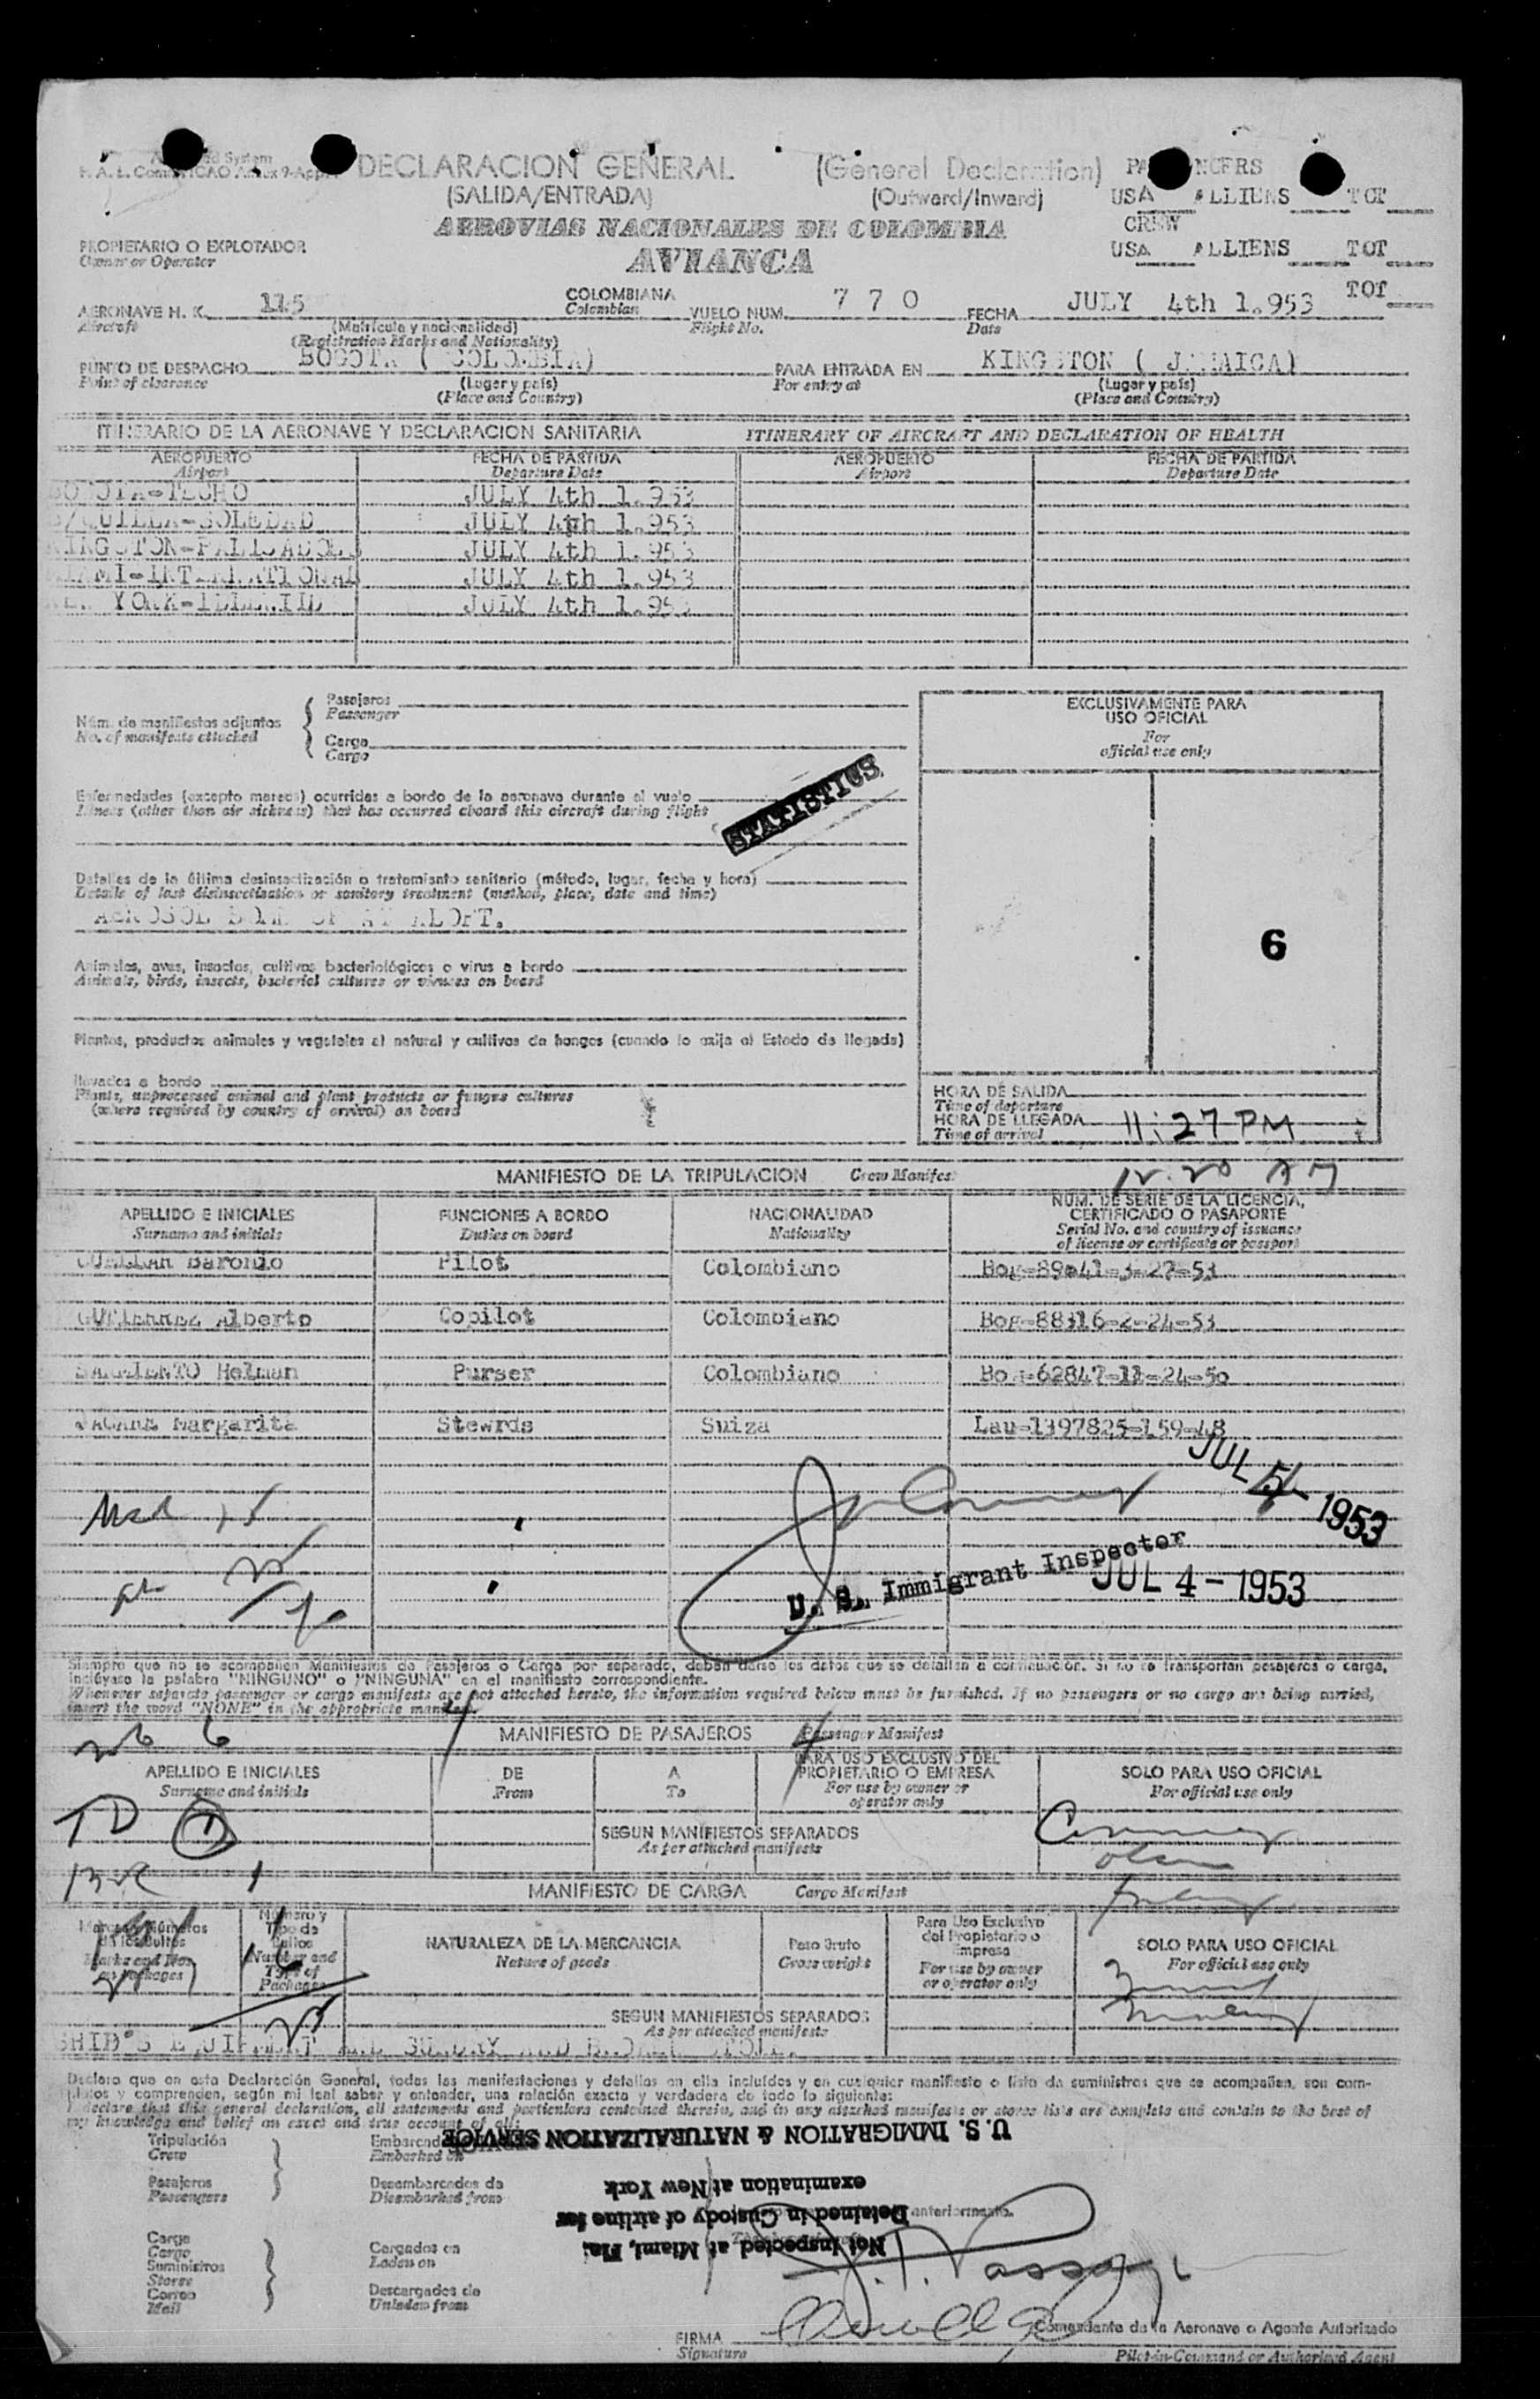 DECLARACION GENERAL (General Declaration)
(SALIDA/ENTRADA) (Outward/Inward)
USA ALLIENS TOT
CREW
USA ALLIENS TOT
TOT
AEROVIAS NACIONALES DE COLOMBIA
AVIANCA
PROPIETARIO O EXPLOTADOR
Owner or Operator
AERONAVE H. K. 115 COLOMBIANA VUELO NUM. 770 FECHA JULY 4th 1.953
Aircraft Colombian Flight No. Date
(Matrícula y nacionalidad)
(Registration Marks and Nationality)
PUNTO DE DESPACHO BOGOTA ( COLOMBIA) PARA ENTRADA EN KINGSTON ( JAMAICA)
Point of clearance (Lugar y país) For entry at (Lugar y país)
(Place and Country) (Place and Country)
ITINERARIO DE LA AERONAVE Y DECLARACION SANITARIA ITINERARY OF AIRCRAFT AND DECLARATION OF HEALTH
AEROPUERTO FECHA DE PARTIDA AEROPUERTO FECHA DE PARTIDA
Airport Departure Date Airport Departure Date
BOGOTA-TECHO JULY 4th 1.953
B/QUILLA-SOLEDAD JULY 4th 1.953
KINGSTON-PALISADOES JULY 4th 1.953
MIAMI-INTERNATIONAL JULY 4th 1.953
NEW YORK-IDLEWILD JULY 4th 1.953
Núm. de manifiestos adjuntos
No. of manifests attached
Pasajeros
Passenger
Carga
Cargo
EXCLUSIVAMENTE PARA
USO OFICIAL
For
official use only
STATISTICS
Enfermedades (excepto mareos) ocurridas a bordo de la aeronave durante el vuelo
Illness (other than air sickness) that has occurred aboard this aircraft during flight
Detalles de la última desinsectización o tratamiento sanitario (método, lugar, fecha y hora)
Details of last disinsectisation or sanitary treatment (method, place, date and time)
AEROSOL BOMB SPRAY ALOFT.
6
Animales, aves, insectos, cultivos bacteriológicos o virus a bordo
Animals, birds, insects, bacterial cultures or viruses on board
Plantas, productos animales y vegetales al natural y cultivos de hongos (cuando lo exija el Estado de llegada)
llevados a bordo
Plants, unprocessed animal and plant products or fungus cultures
(where required by country of arrival) on board
HORA DE SALIDA
Time of departure
HORA DE LLEGADA 11:27 PM
Time of arrival
MANIFIESTO DE LA TRIPULACION Crew Manifest
APELLIDO E INICIALES FUNCIONES A BORDO NACIONALIDAD NUM. DE SERIE DE LA LICENCIA,
CERTIFICADO O PASAPORTE
Surname and initials Duties on board Nationality Serial No. and country of issuance
of license or certificate or passport
CUELLAR Pilot Colombiano Bog-89041-3-27-53
GUTIERREZ Alberto Copilot Colombiano Bog-88316-2-24-53
SARMIENTO Helman Purser Colombiano Bog-62847-11-24-50
Margarita Stewrds Suiza Lau-1397825-159-48
JUL 5 - 1953
U. S. Immigrant Inspector
JUL 4 - 1953
Siempre que no se acompañen Manifiestos de Pasajeros o Carga por separado, deben darse los datos que se detallan a continuación. Si no se transportan pasajeros o carga,
inclúyase la palabra "NINGUNO" o "NINGUNA" en el manifiesto correspondiente.
Whenever separate passenger or cargo manifests are not attached hereto, the information required below must be furnished. If no passengers or no cargo are being carried,
insert the word "NONE" in the appropriate manifest.
MANIFIESTO DE PASAJEROS Passenger Manifest
APELLIDO E INICIALES DE A PARA USO EXCLUSIVO DEL
PROPIETARIO O EMPRESA SOLO PARA USO OFICIAL
Surname and initials From To For use by owner or
operator only For official use only
TD 1
SEGUN MANIFIESTOS SEPARADOS
As per attached manifests
MANIFIESTO DE CARGA Cargo Manifest
Marcas y Números
de los Bultos
Marks and Nos.
on Packages
Número y
Tipo de
Bultos
Number and
Type of
Packages
NATURALEZA DE LA MERCANCIA
Nature of goods
Peso Bruto
Gross weight
Para Uso Exclusivo
del Propietario o
Empresa
For use by owner
or operator only
SOLO PARA USO OFICIAL
For official use only
SEGUN MANIFIESTOS SEPARADOS
As per attached manifests
SHIP'S EQUIPMENT AND
Declaro que en esta Declaración General, todas las manifestaciones y detalles en ella incluídos y en cualquier manifiesto o lista de suministros que se acompañen, son com-
pletos y comprenden, según mi leal saber y entender, una relación exacta y verdadera de todo lo siguiente:
I declare that this general declaration, all statements and particulars contained therein, and in any attached manifests or stores lists are complete and contain to the best of
my knowledge and belief an exact and true account of all:
U. S. IMMIGRATION & NATURALIZATION SERVICE
examination at New York
Detained in Custody of airline for
Not Inspected at Miami, Fla.
Tripulación
Crew
Pasajeros
Passengers
Embarcados en
Embarked on
Desembarcados de
Disembarked from
anteriormente.
Carga
Cargo
Suministros
Stores
Correo
Mail
Cargados en
Laden on
Descargados de
Unladen from
FIRMA
Signature
Comandante de la Aeronave o Agente Autorizado
Pilot-in-Command or Authorized Agent